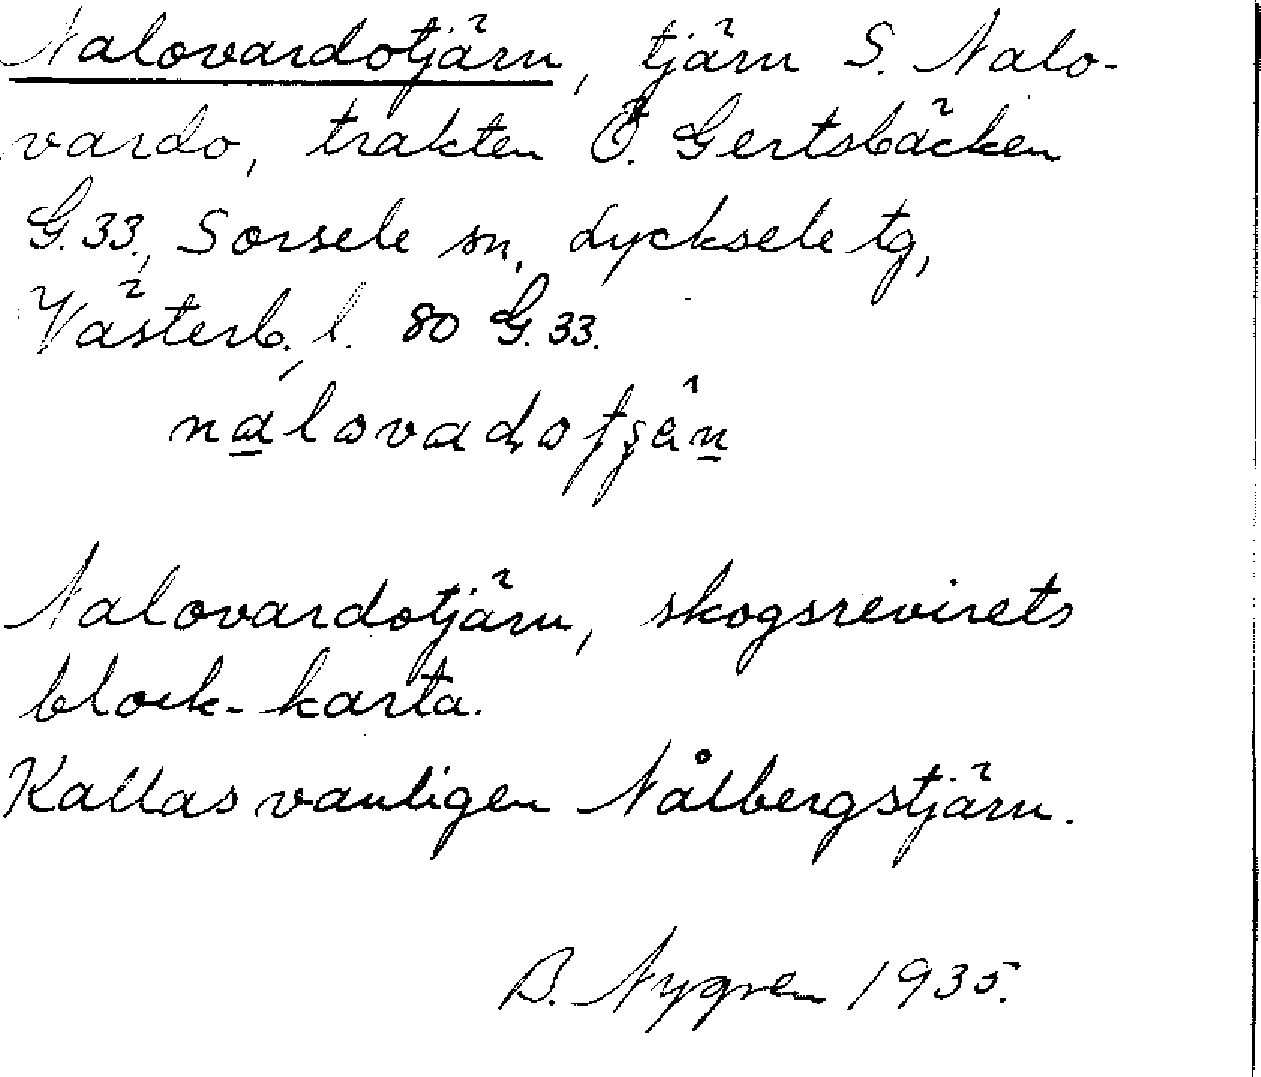 Nalovardotjärn, tjärn S. Nalo-
vardo, trakten Ö. Gertsbäcken
G.33., Sorsele sn, Lycksele tg,
Västerb. l. 80 G.33.
Nalovardotjärn, skogsrevirets
block-karta.
Kallas vanligen Nålbergstjärn.
B. Nygren 1935.